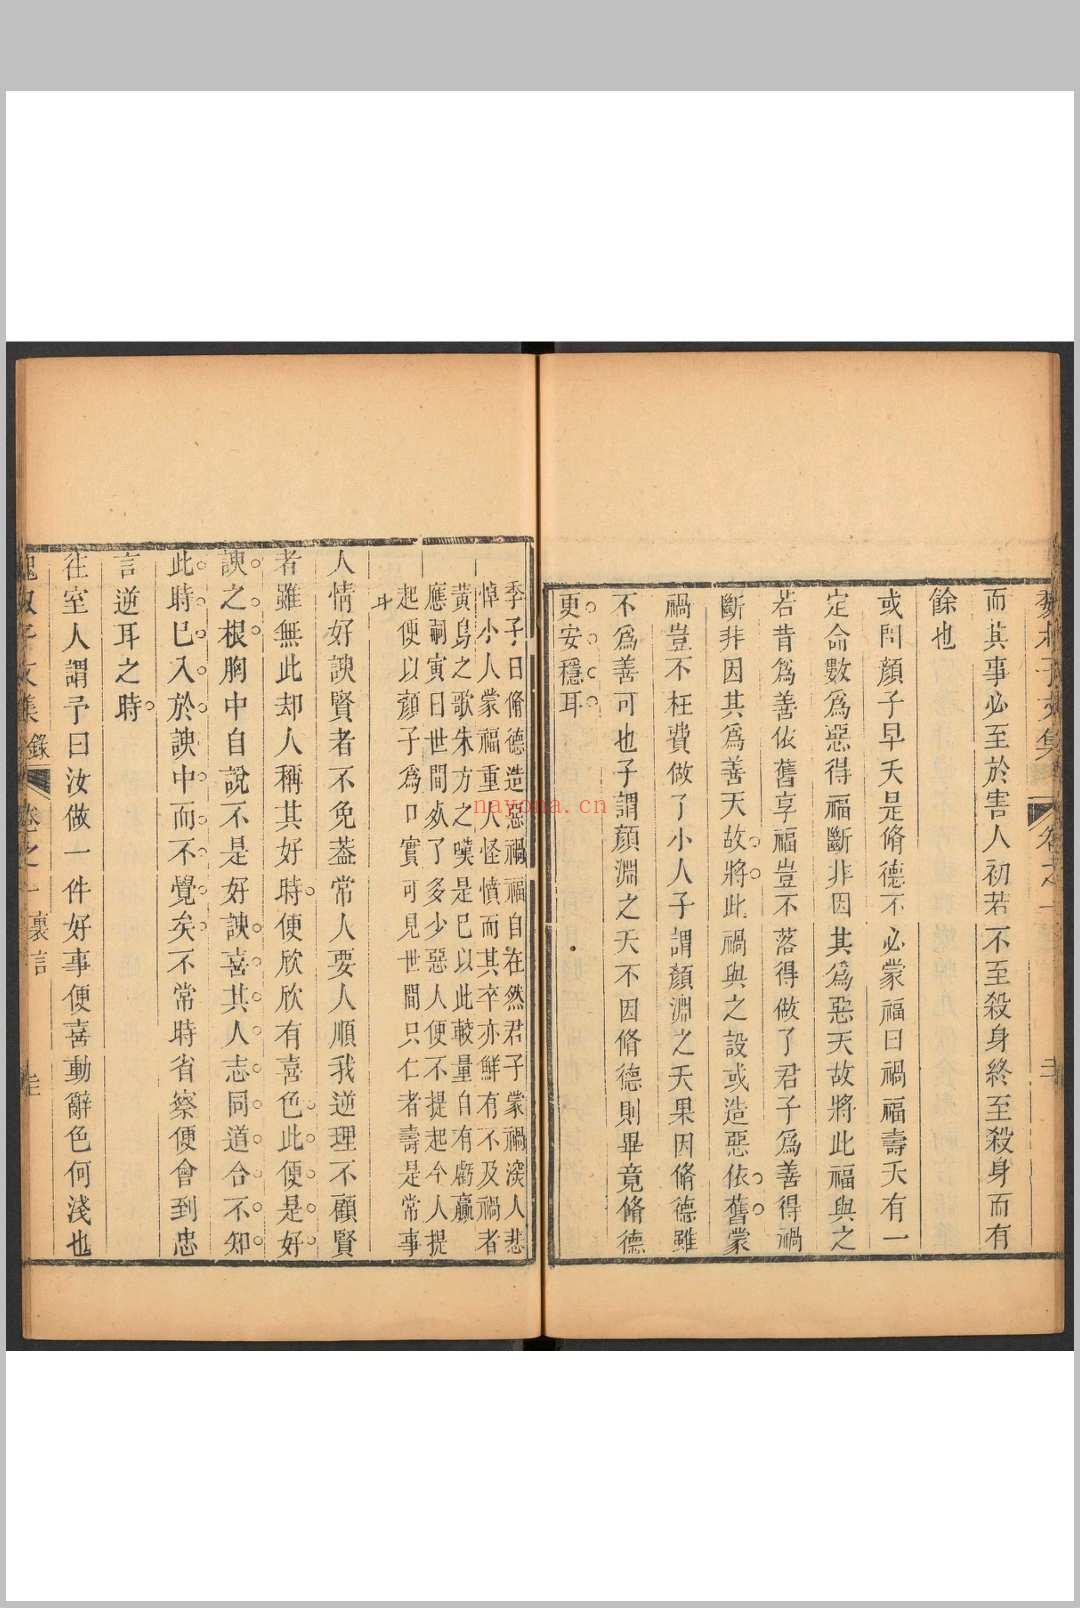 而其事必至於害人初若不至殺身終至殺身而有
餘也
或問顏子早夭是脩德不必蒙福曰禍福壽夭有一
定命數爲惡得福斷非因其爲惡天故將此福與之
若昔爲善依舊享福豈不落得做了君子爲善得禍
斷非因其爲善天故將此禍與之設或造惡依舊蒙
禍豈不枉費做了小人子謂顏淵之夭果因脩德雖
不爲善可也子謂顏淵之夭不因脩德則畢竟脩德
更安穩耳
季子曰脩德造惡禍福自在然君子蒙禍深人悲
悼小人蒙福重人怪憤而其卒亦鮮有不及禍者
黃鳥之歌朱方之嘆是已以此較量自有虧贏
應嗣寅曰世間妖了多少惡人便不提起今人提
起便以顏子爲口實可見世間只仁者壽是常事
人情好諛賢者不免蓋常人要人順我逆理不顧賢
者雖無此却人稱其好時便欣欣有喜色此便是好
諛之根胸中自說不是好諛喜其人志同道合不知
此時已入於諛中而不覺矣不常時省察便會到忠
言逆耳之時
往室人謂予曰汝做一件好事便喜動辭色何淺也
魏叔子文集 錄 卷之一 裏言
nayona.cn